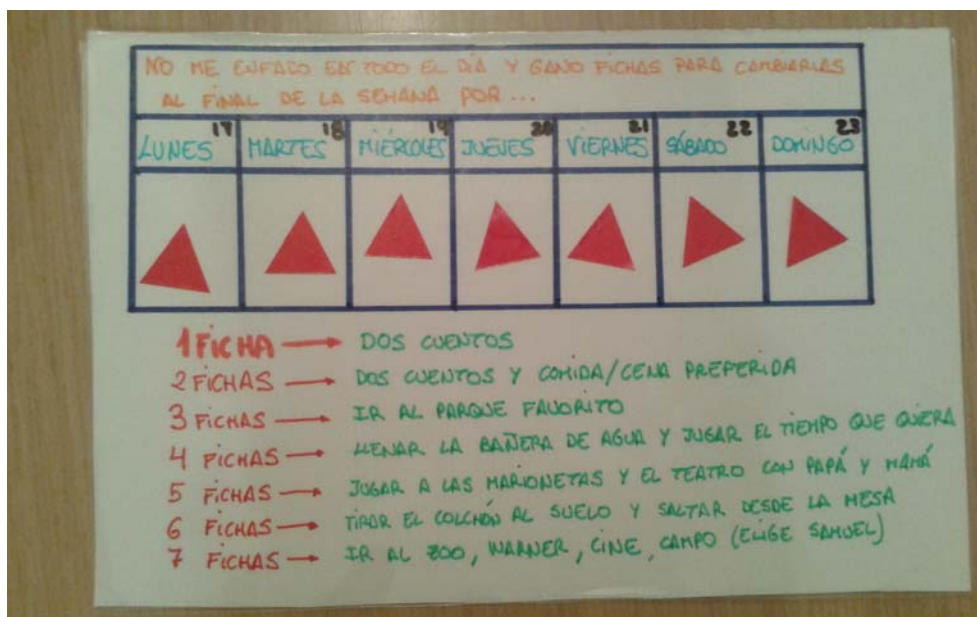 NO ME ENFADO EN TODO EL DÍA Y GANO FICHAS PARA CAMBIARLAS
AL FINAL DE LA SEMANA POR...
LUNES 17 MARTES 18 MIÉRCOLES 19 JUEVES 20 VIERNES 21 SÁBADO 22 DOMINGO 23
1 FICHA → DOS CUENTOS
2 FICHAS → DOS CUENTOS Y COMIDA/CENA PREFERIDA
3 FICHAS → IR AL PARQUE FAVORITO
4 FICHAS → LLENAR LA BAÑERA DE AGUA Y JUGAR EL TIEMPO QUE QUIERA
5 FICHAS → JUGAR A LAS MARIONETAS Y EL TEATRO CON PAPÁ Y MAMÁ
6 FICHAS → TIRAR EL COLCHÓN AL SUELO Y SALTAR DESDE LA MESA
7 FICHAS → IR AL ZOO, WARNER, CINE, CAMPO (ELIGE SAMUEL)